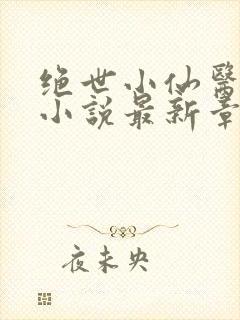 绝世小仙醫
小說最新章
夜未央